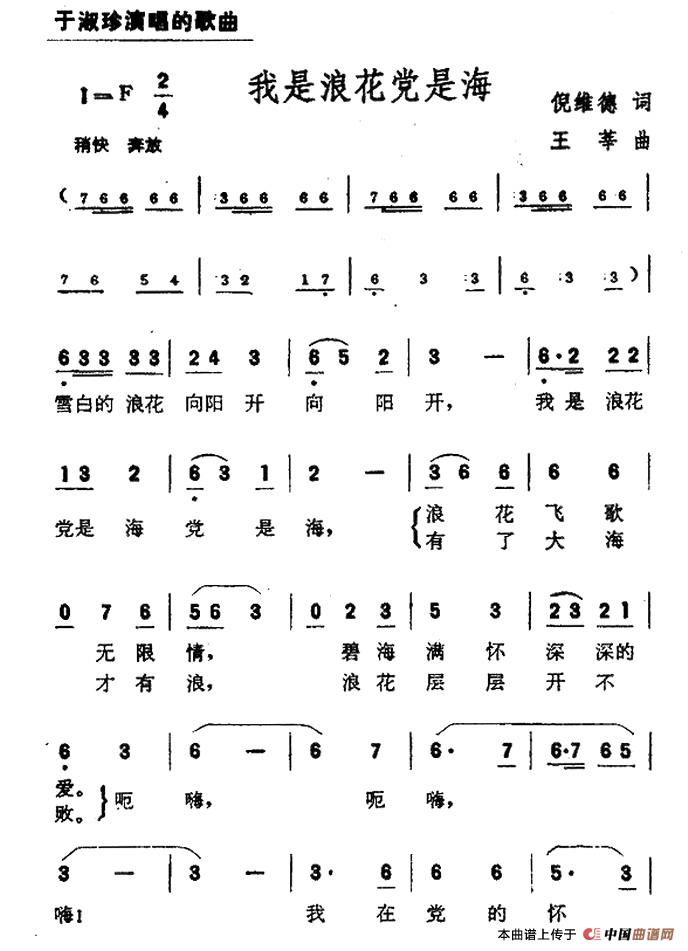 于淑珍演唱的歌曲
我是浪花党是海
1=F 2/4
倪维德 词
稍快 奔放
王莘 曲
( 7 6 6 6 6 | 3 6 6 6 6 | 7 6 6 6 6 | 3 6 6 6 6 |
7 6 5 4 | 3 2 1 7 | 6 3 3 | 6 3 3 ) |
6 3 3 3 3 | 2 4 3 | 6 5 2 | 3 — | 6· 2 2 2 |
雪白的 浪花 向阳 开 向 阳 开, 我 是 浪花
1 3 2 | 6 3 1 | 2 — | 3 6 6 | 6 6 |
党是 海 党 是 海, 浪 花 飞 歌
有 了 大 海
0 7 6 | 5 6 3 | 0 2 3 | 5 3 | 2 3 2 1 |
无 限 情, 碧 海 满 怀 深 深的
才 有 浪, 浪 花 层 层 开 不
6 3 | 6 — | 6 7 | 6· 7 | 6·7 6 5 |
爱。 呃 嗨, 呃 嗨,
败。
3 — | 3 — | 3· 6 | 6 6 | 5· 3 |
嗨! 我 在 党 的 怀
本曲谱上传于 中国曲谱网